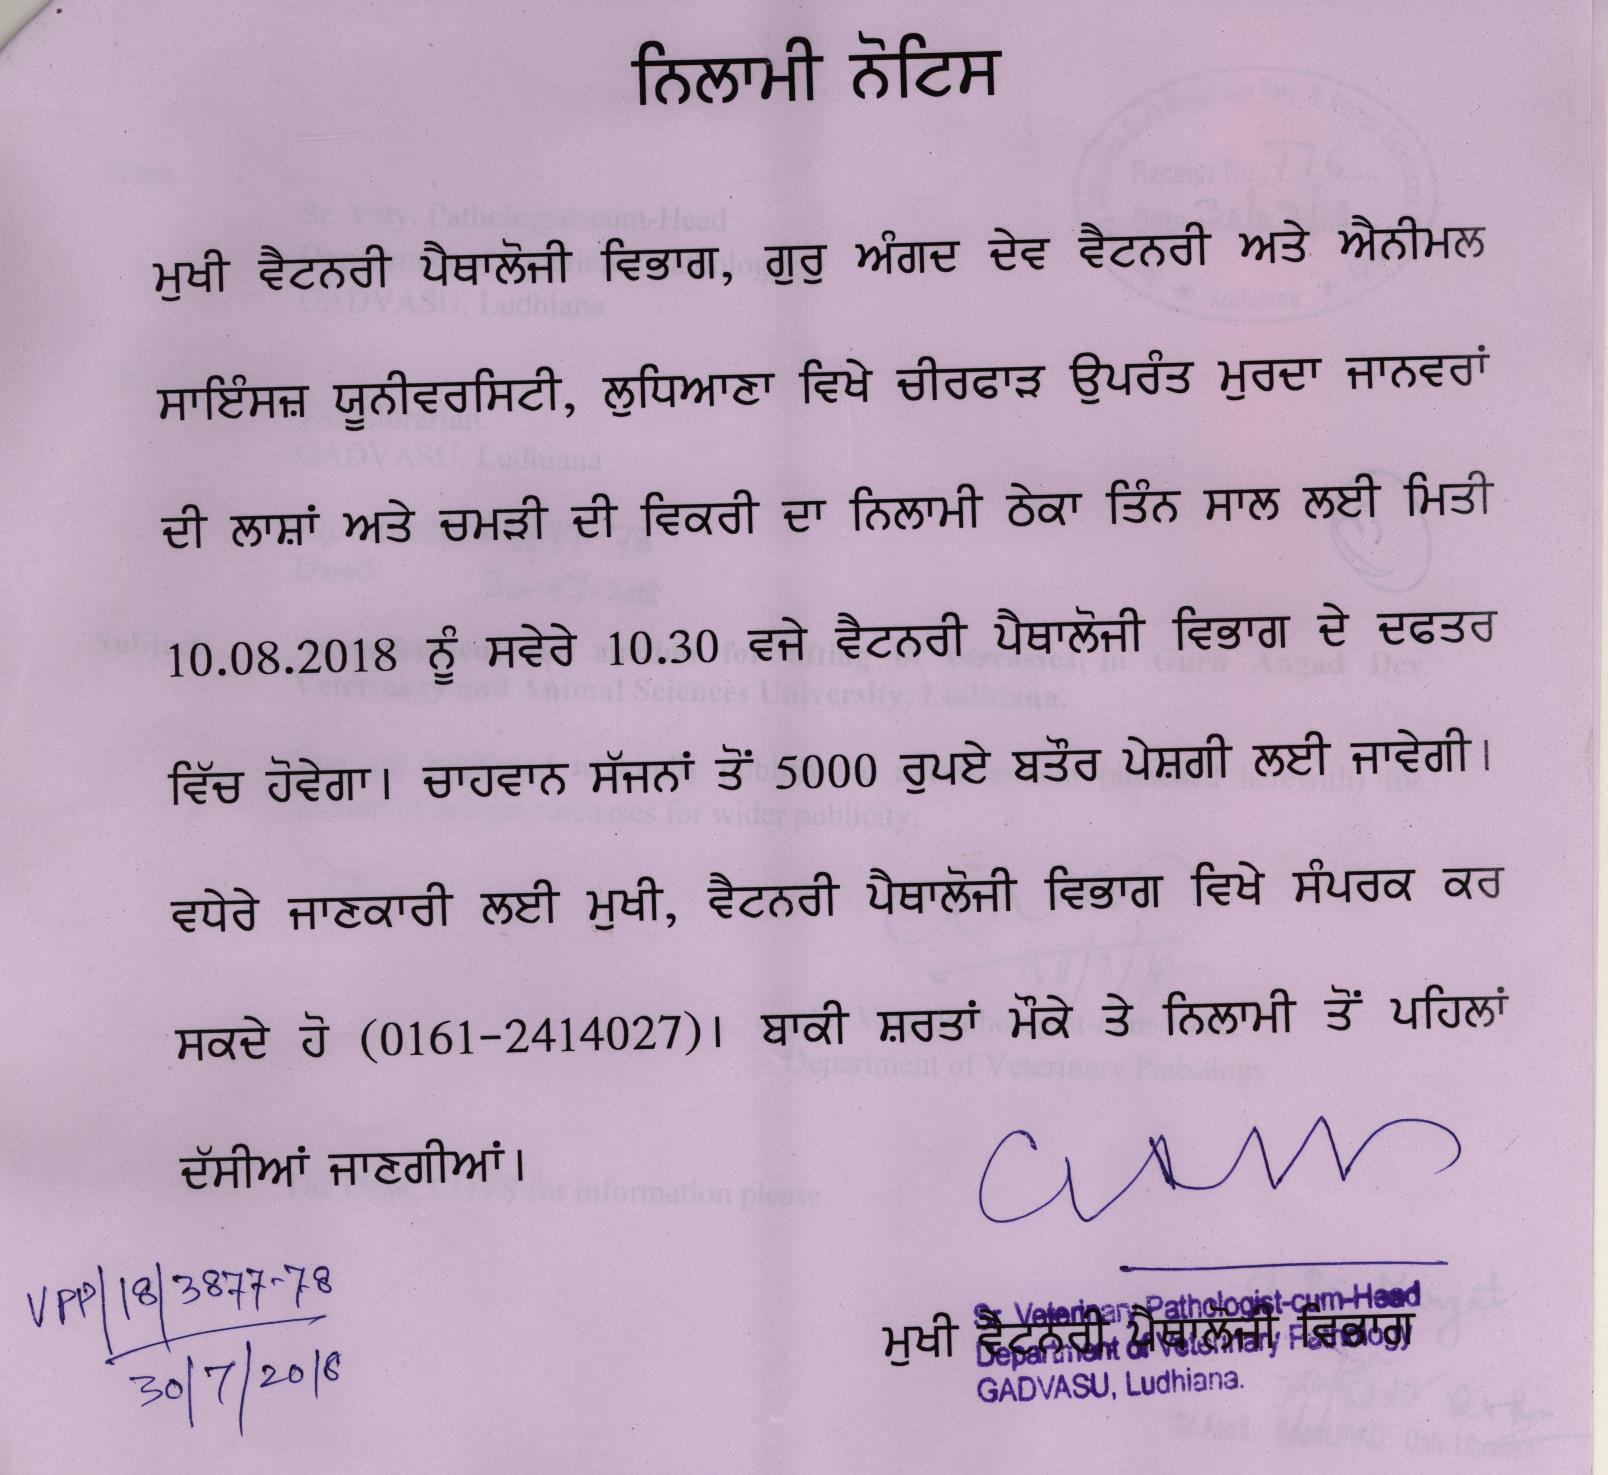 ਨਿਲਾਮੀ ਨੋਟਿਸ
ਮੁਖੀ ਵੈਟਨਰੀ ਪੈਥਾਲੋਜੀ ਵਿਭਾਗ, ਗੁਰੂ ਅੰਗਦ ਦੇਵ ਵੈਟਨਰੀ ਅਤੇ ਐਨੀਮਲ
ਸਾਇੰਸਜ਼ ਯੂਨੀਵਰਸਿਟੀ, ਲੁਧਿਆਣਾ ਵਿਖੇ ਚੀਰਫਾੜ ਉਪਰੰਤ ਮੁਰਦਾ ਜਾਨਵਰਾਂ
ਦੀ ਲਾਸ਼ਾਂ ਅਤੇ ਚਮੜੀ ਦੀ ਵਿਕਰੀ ਦਾ ਨਿਲਾਮੀ ਠੇਕਾ ਤਿੰਨ ਸਾਲ ਲਈ ਮਿਤੀ
10.08.2018 ਨੂੰ ਸਵੇਰੇ 10.30 ਵਜੇ ਵੈਟਨਰੀ ਪੈਥਾਲੋਜੀ ਵਿਭਾਗ ਦੇ ਦਫਤਰ
ਵਿੱਚ ਹੋਵੇਗਾ। ਚਾਹਵਾਨ ਸੱਜਨਾਂ ਤੋਂ 5000 ਰੁਪਏ ਬਤੌਰ ਪੇਸ਼ਗੀ ਲਈ ਜਾਵੇਗੀ।
ਵਧੇਰੇ ਜਾਣਕਾਰੀ ਲਈ ਮੁਖੀ, ਵੈਟਨਰੀ ਪੈਥਾਲੋਜੀ ਵਿਭਾਗ ਵਿਖੇ ਸੰਪਰਕ ਕਰ
ਸਕਦੇ ਹੋ (0161-2414027)। ਬਾਕੀ ਸ਼ਰਤਾਂ ਮੌਕੇ ਤੇ ਨਿਲਾਮੀ ਤੋਂ ਪਹਿਲਾਂ
ਦੱਸੀਆਂ ਜਾਣਗੀਆਂ।
VPP/18/3877-78
30/7/2018
Sr. Veterinary Pathologist-cum-Head
ਮੁਖੀ ਵੈਟਨਰੀ ਪੈਥਾਲੋਜੀ ਵਿਭਾਗ
Department of Veterinary Pathology
GADVASU, Ludhiana.